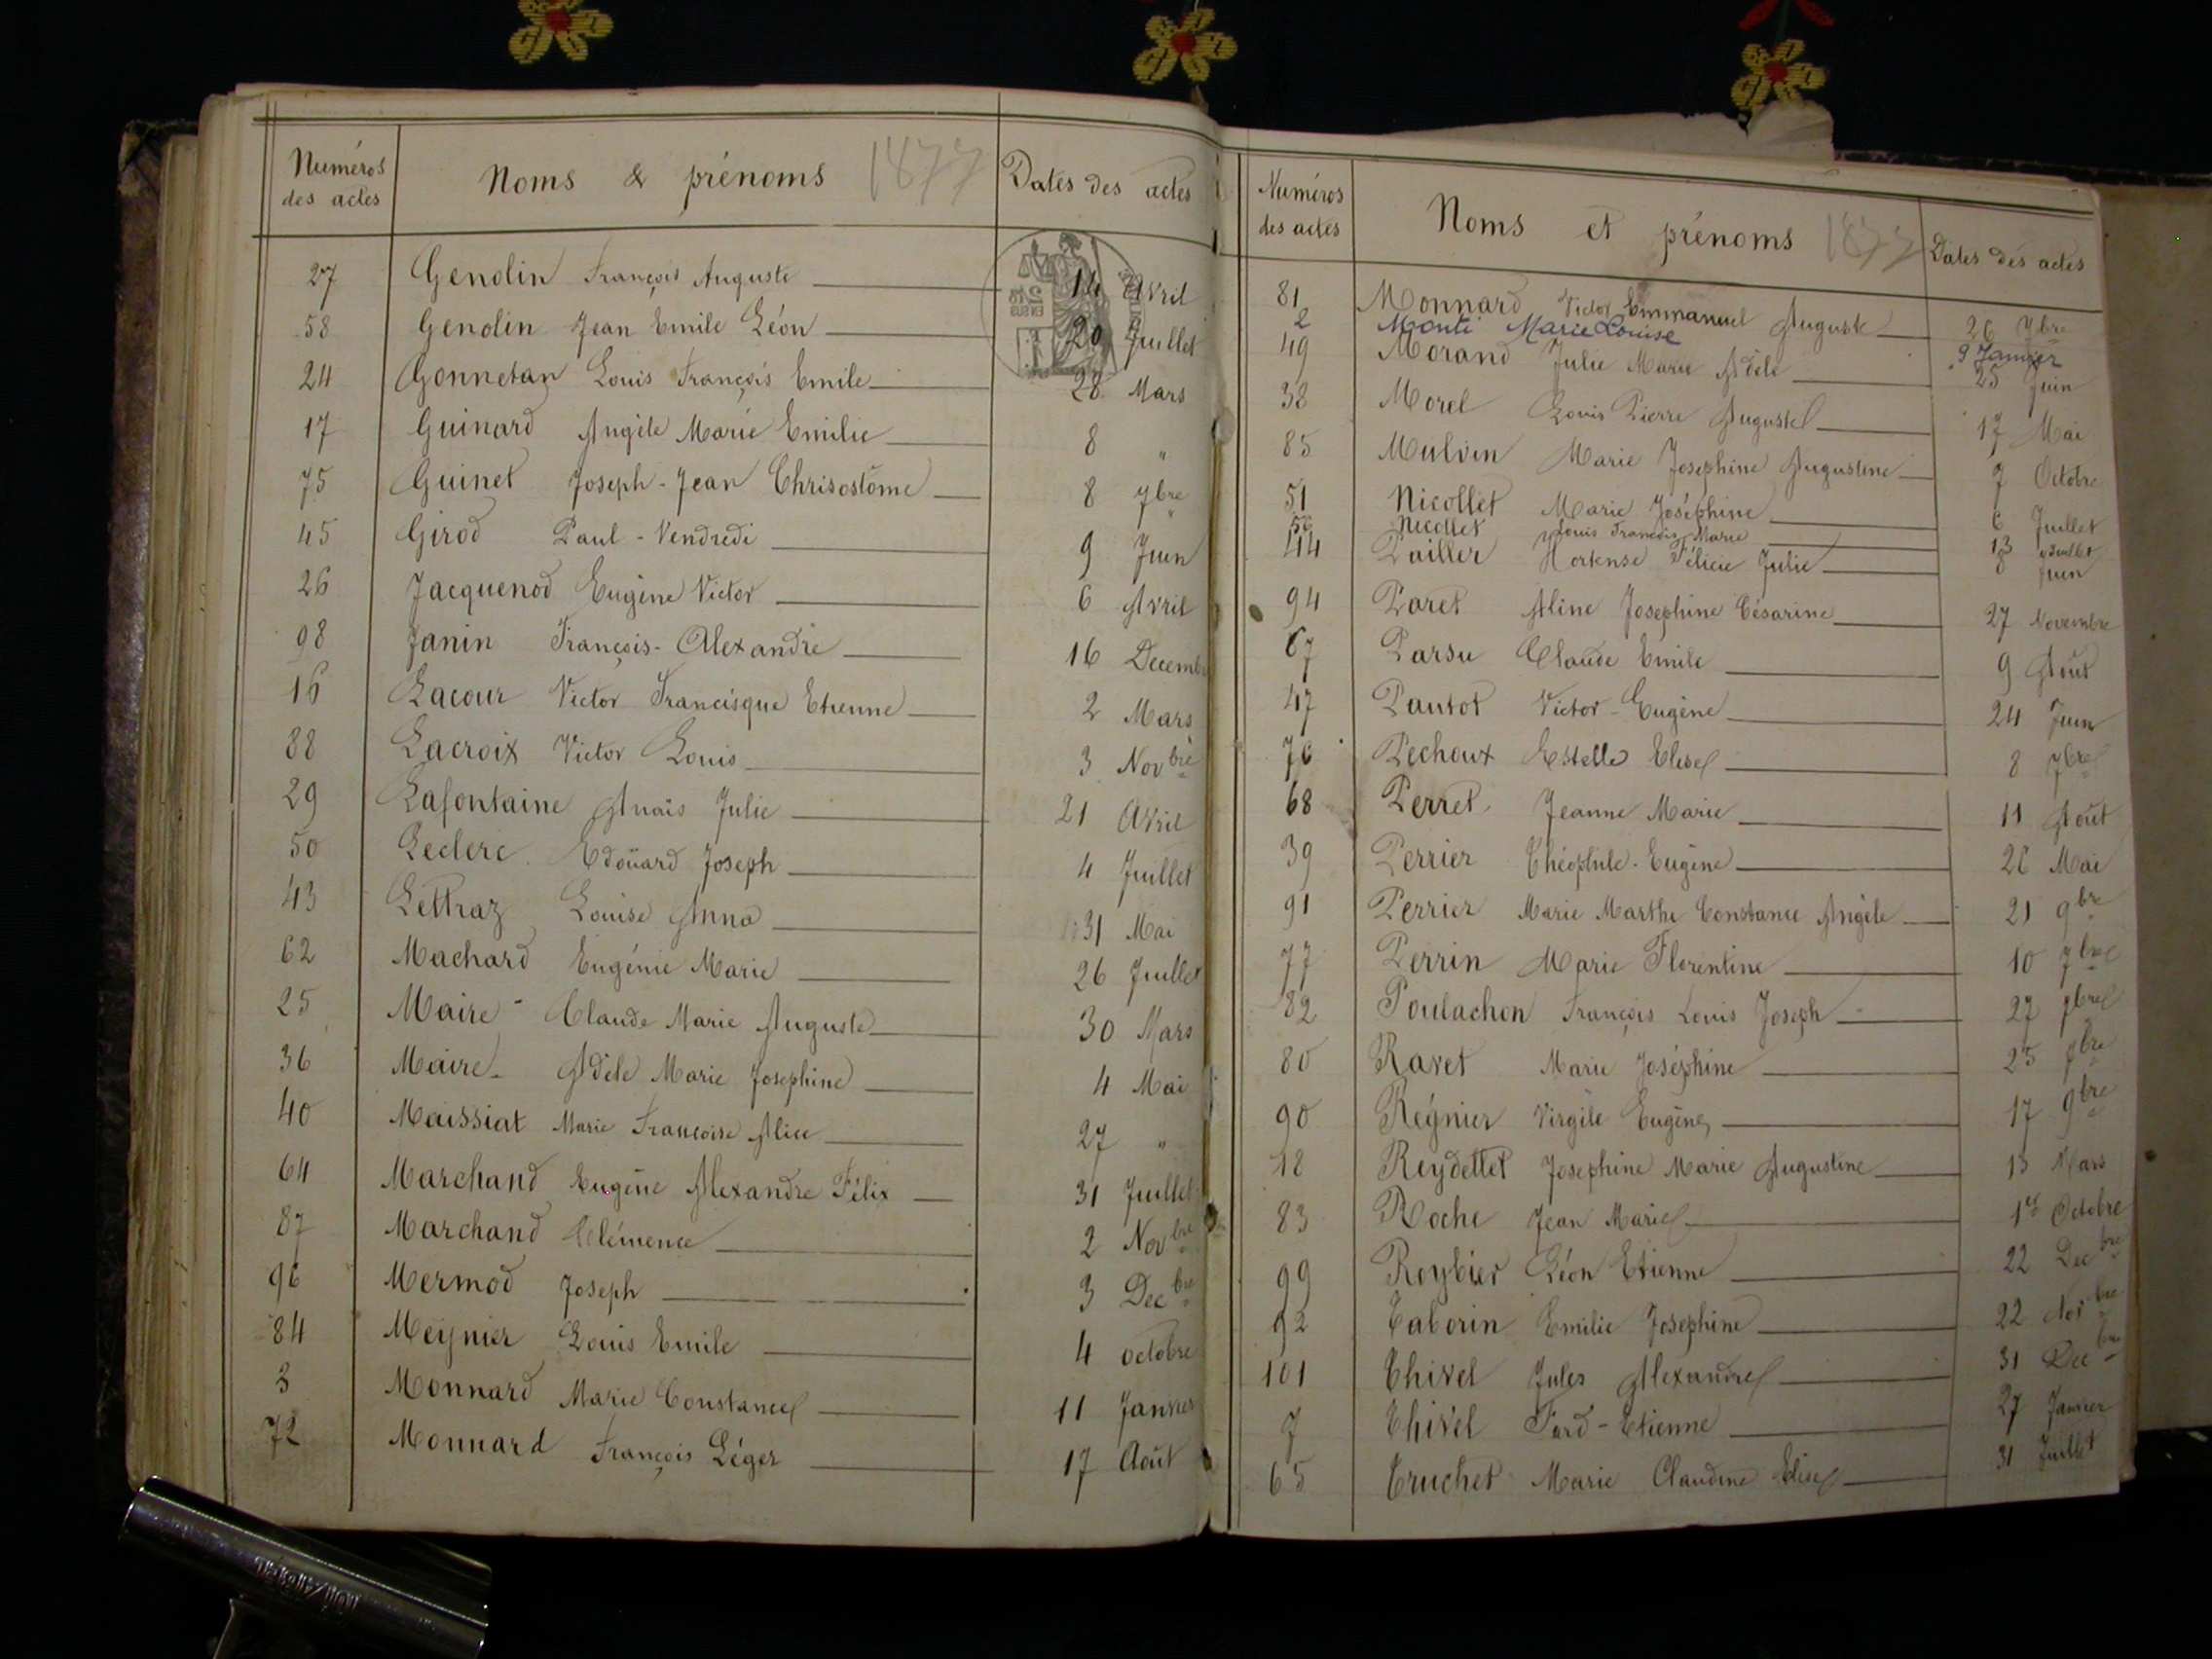 Numéros des actes Noms & prénoms 1877 Dates des actes
27 Gendin François Auguste 14 Avril
58 Gendin Jean Emile Léon 20 Juillet
24 Gonnetan Louis François Emile 28 Mars
17 Guinard Angèle Marie Emilie 8 "
75 Guinet Joseph-Jean Chrisostôme 8 7bre
45 Girod Paul-Vendredi 9 Juin
26 Jacquenod Eugène Victor 6 Avril
98 Janin François-Alexandre 16 Decembre
16 Lacour Victor Francisque Etienne 2 Mars
88 Lacroix Victor Louis 3 Novbre
29 Lafontaine Anaïs Julie 21 Avril
50 Leclerc Edoüard Joseph 4 Juillet
43 Lettraz Louise Anna 31 Mai
62 Machard Eugénie Marie 26 Juillet
25 Maire - Claude Marie Auguste 30 Mars
36 Maire - Adèle Marie Josephine 4 Mai
40 Maissiat Marie Françoise Alice 27 "
64 Marchand Eugène Alexandre Félix 31 Juillet
87 Marchand Clémence 2 Novbre
96 Mermod Joseph 3 Decbre
84 Meynier Louis Emile 4 octobre
3 Monnard Marie Constance 11 Janvier
72 Monnard François Léger 17 Août
Numéros des actes Noms et prénoms 1877 Dates des actes
81 Monnard Victor Emmanuel Auguste 26 7bre
2 Monti Marie Louise 9 Janvier
49 Morand Julie Marie Adèle 25 Juin
38 Morel Louis Pierre Auguste 17 Mai
85 Mulvin Marie Josephine Augustine 7 Octobre
51 Nicollet Marie Joséphine 6 Juillet
56 Nicollet Louis François Marie 13 Juillet
44 Pailler Hortense Félicie Julie 8 Juin
94 Paret Aline Josephine Césarine 27 Novembre
67 Parsu Claude Emile 9 Août
47 Pautot Victor-Eugène 24 Juin
76 Pechoux Estelle Elise 8 7bre
68 Perret Jeanne Marie 11 Août
39 Perrier Théophile-Eugène 26 Mai
91 Perrier Marie Marthe Constance Angèle 21 9bre
77 Perrin Marie Florentine 10 7bre
82 Poulachon François Louis Joseph 27 7bre
80 Ravet Marie Joséphine 25 7bre
90 Regnier Virgile Eugène 17 9bre
18 Reydellet Josephine Marie Augustine 13 Mars
83 Roche Jean Marie 1er Octobre
99 Roybier Léon Etienne 22 Decbre
92 Taborin Emilie Josephine 22 Novbre
101 Thivel Jules Alexandre 31 Decbre
7 Thivel Ferd-Etienne 27 Janvier
65 Truchet Marie Claudine Elise 31 Juillet